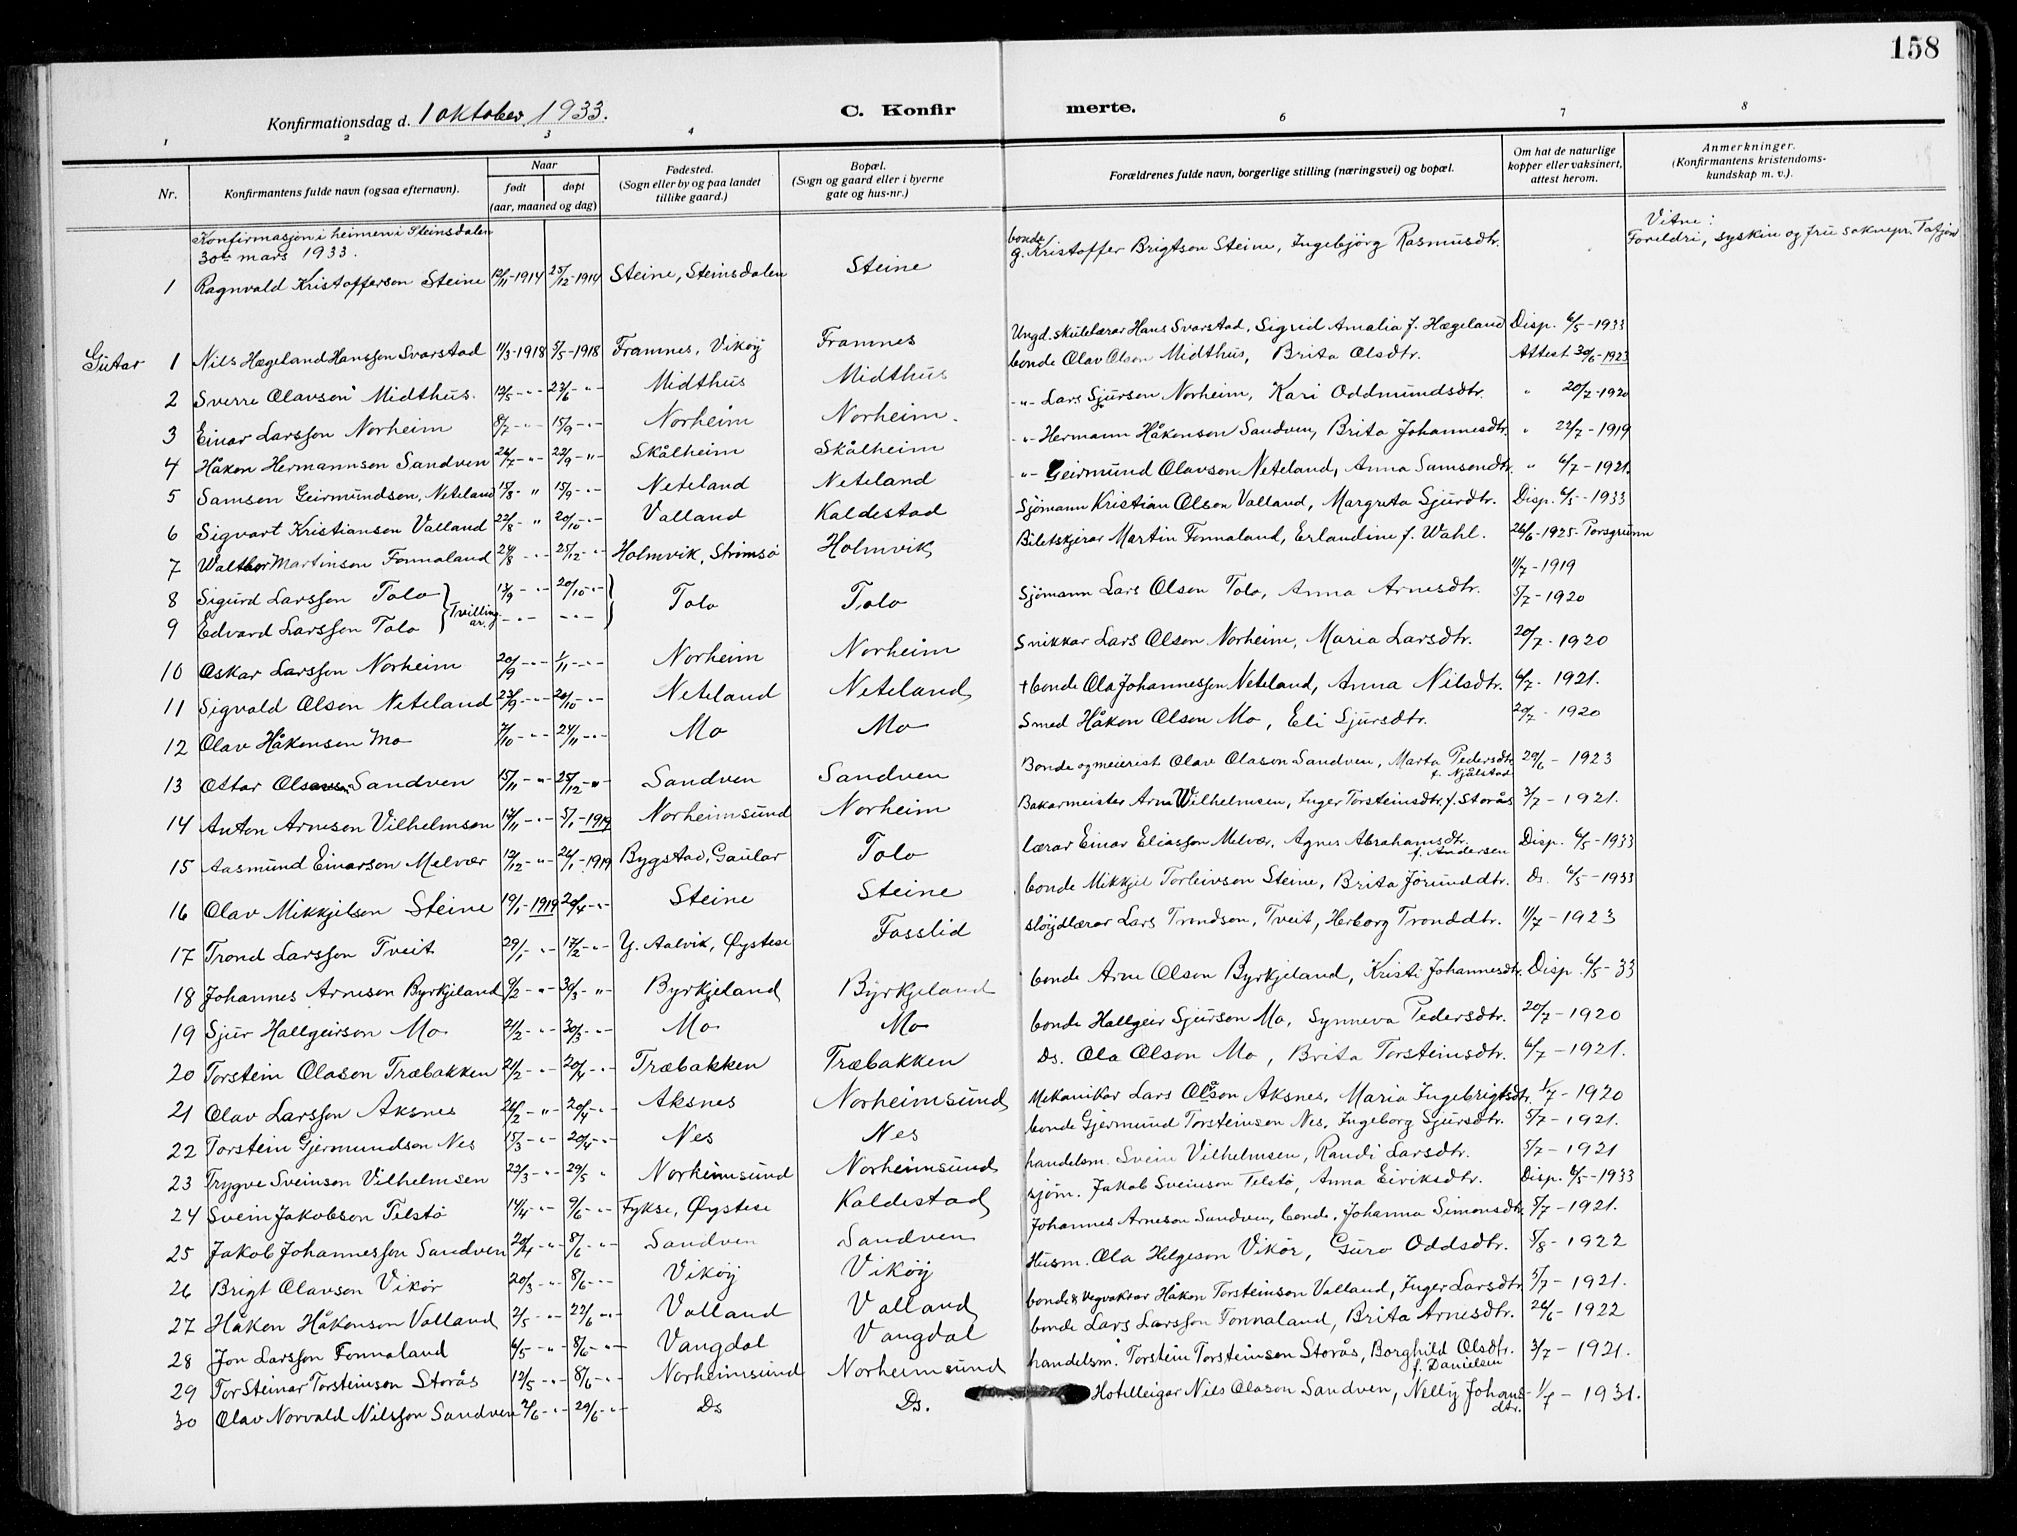 158
Konfirmationsdag d. 1 oktober 1933.
C. Konfirmerte.
1 2 3 4 6 7 8
Nr. | Konfirmantens fulde navn (ogsaa efternavn). | Naar født døpt (aar, maaned og dag) | Fødested. (Sogn eller by og paa landet tillike gaard.) | Bopæl. (Sogn og gaard eller i byerne gate og hus-nr.) | Forældrenes fulde navn, borgerlige stilling (næringsvei) og bopæl. | Om hat de naturlige kopper eller vaksinert, attest herom. | Anmerkninger. (Konfirmantens kristendoms-kundskap m. v.).
Konfirmasjon i heimen i Steinsdalen
30te mars 1933.
1 Ragnvald Kristofferson Steine 12/11-1914 25/12-1914 Steine, Steinsdalen Steine bonde g. Kristoffer Brigtson Steine, Ingebjörg Rasmusdtr. Vitne: Foreldri, syskin og fru soknepr. Tafjord
Gutar
1 Nils Hægeland Hansson Svarstad 11/3-1918 5/5-1918 Framnes, Viköy Framnes Ungd.skulelærar Hans Svarstad, Sigrid Amalia f. Hægeland Disp. 6/5-1933
2 Sverre Olavson Midthus 12/5 -"- 23/6 -"- Midthus Midthus bonde Olav Olson Midthus, Brita Olsdtr. Attest 30/6-1923
3 Einar Larsson Norheim 8/7 -"- 15/9 -"- Norheim Norheim -"- Lars Sjurson Norheim, Kari Oddmundsdtr. " 20/7-1920
4 Håkon Hermannson Sandven 26/7 -"- 22/9 -"- Skålheim Skålheim -"- Hermann Håkonson Sandven, Brita Johannesdtr. " 22/7-1919
5 Samson Geirmundson, Neteland 15/8 -"- 15/9 -"- Neteland Neteland -"- Geirmund Olavson Neteland, Anna Samsondtr. " 6/7-1921.
6 Sigvart Kristianson Valland 22/8 -"- 20/10 -"- Valland Kaldestad Sjömann Kristian Olson Valland, Margreta Sjurdtr. Disp. 6/5-1933
7 Walthor Martinson Fonnaland 24/8 -"- 25/12 -"- Holmvik, Strömsö Holmvik Biletskjerar Martin Fonnaland, Erlandine f. Wahl. 26/6-1925-Porsgrunn
8 Sigurd Larsson Tolo 13/9 -"- 20/10 -"- Tolo Tolo Sjömann Lars Olson Tolo, Anna Arnesdtr. 11/7-1919
9 Edvard Larsson Tolo Tvillingar. -"- -"- 5/7-1920
10 Oskar Larsson Norheim 20/9 -"- 1/11 -"- Norheim Norheim Snikkar Lars Olson Norheim, Maria Larsdtr. 20/7-1920
11 Sigvald Olson Neteland 23/9 -"- 20/10 -"- Neteland Neteland †bonde Ola Johannesson Neteland, Anna Nilsdtr. 6/7-1921.
12 Olav Håkonson Mo 7/10 -"- 24/11 -"- Mo Mo Smed Håkon Olson Mo, Eli Sjursdtr. 20/7-1920
13 Ottar Olavson Sandven 15/11 -"- 25/12 -"- Sandven Sandven Bonde og meierist Olav Olason Sandven, Marta Pedersdtr. f. Njålstad 29/6-1923
14 Anton Arneson Vilhelmsen 14/11 -"- 5/1-1919 Norheimsund Norheim Bakarmeister Arne Wilhelmsen, Inger Torsteinsdtr. f. Storås 3/7-1921.
15 Aasmund Einarson Melvær 12/12 -"- 26/1-1919 Bygstad, Gaular Tolo lærar Einar Eliasson Melvær, Agnes Abrahamsdtr. f. Andersen Disp. 6/5-1933
16 Olav Mikkjelson Steine 19/1-1919 20/4 -"- Steine Steine bonde Mikkjel Torleivson Steine, Brita Jörunddtr. Ds. 6/5-1933
17 Trond Larsson Tveit 29/1 -"- 17/2 -"- Y. Aalvik, Øystese Fosslid slöydlærar Lars Trondson, Tveit, Herborg Tronddtr. 11/7-1923
18 Johannes Arneson Byrkjeland 9/2 -"- 30/3 -"- Byrkjeland Byrkjeland bonde Arne Olson Byrkjeland, Kristi Johannesdtr. Disp. 6/5-33
19 Sjur Hallgeirson Mo 21/2 -"- 30/3 -"- Mo Mo bonde Hallgeir Sjurson Mo, Synneva Pedersdtr. 20/7-1920
20 Torstein Olason Træbakken 24/2 -"- 20/4 -"- Træbakken Træbakken Ds. Ola Olson Mo, Brita Torsteinsdtr. 6/7-1921.
21 Olav Larsson Aksnes 26/2 -"- 20/4 -"- Aksnes Norheimsund Mekanikar Lars Olson Aksnes, Maria Ingebrigtsdtr. 1/7-1920
22 Torstein Gjermundson Nes 15/3 -"- 20/4 -"- Nes Nes bonde Gjermund Torsteinson Nes, Ingeborg Sjursdtr. 5/7-1921.
23 Trygve Sveinson Vilhelmsen 22/3 -"- 29/5 " Norheimsund Norheimsund handelsm. Svein Vilhelmsen, Randi Larsdtr. 5/7-1921
24 Svein Jakobson Telstö 14/4 -"- 9/6 -"- Fykse, Øystese Kaldestad sjöm. Jakob Sveinson Telstö, Anna Eiriksdtr. Disp. 6/5-1933
25 Jakob Johannesson Sandven 20/4 -"- 8/6 -"- Sandven Sandven Johannes Arneson Sandven, bonde, Johanna Simonsdtr. 5/7-1921.
26 Brigt Olavson Vikör 20/3 -"- 8/6 -"- Viköy Viköy Husm. Ola Helgeson Vikör, Guro Oddsdtr. 5/8-1922
27 Håkon Håkonson Valland 2/5 -"- 22/6 -"- Valland Valland bonde & vegvaktar Håkon Torsteinson Valland, Inger Larsdtr. 5/7-1921.
28 Jon Larsson Fonnaland 6/5 -"- 8/6 -"- Vangdal Vangdal bonde Lars Larsson Fonnaland, Brita Arnesdtr. 26/6-1922
29 Tor Steinar Torsteinson Storås 12/5 -"- 8/6 -"- Norheimsund Norheimsund handelsm. Torstein Torsteinson Storås, Borghild Olsdtr. f. Danielsen 3/7-1921.
30 Olav Norvald Nilsson Sandven 2/6 -"- 29/6 -"- Ds Ds. Hotelleigar Nils Olason Sandven, Nelly Johansdtr. 1/7-1931.